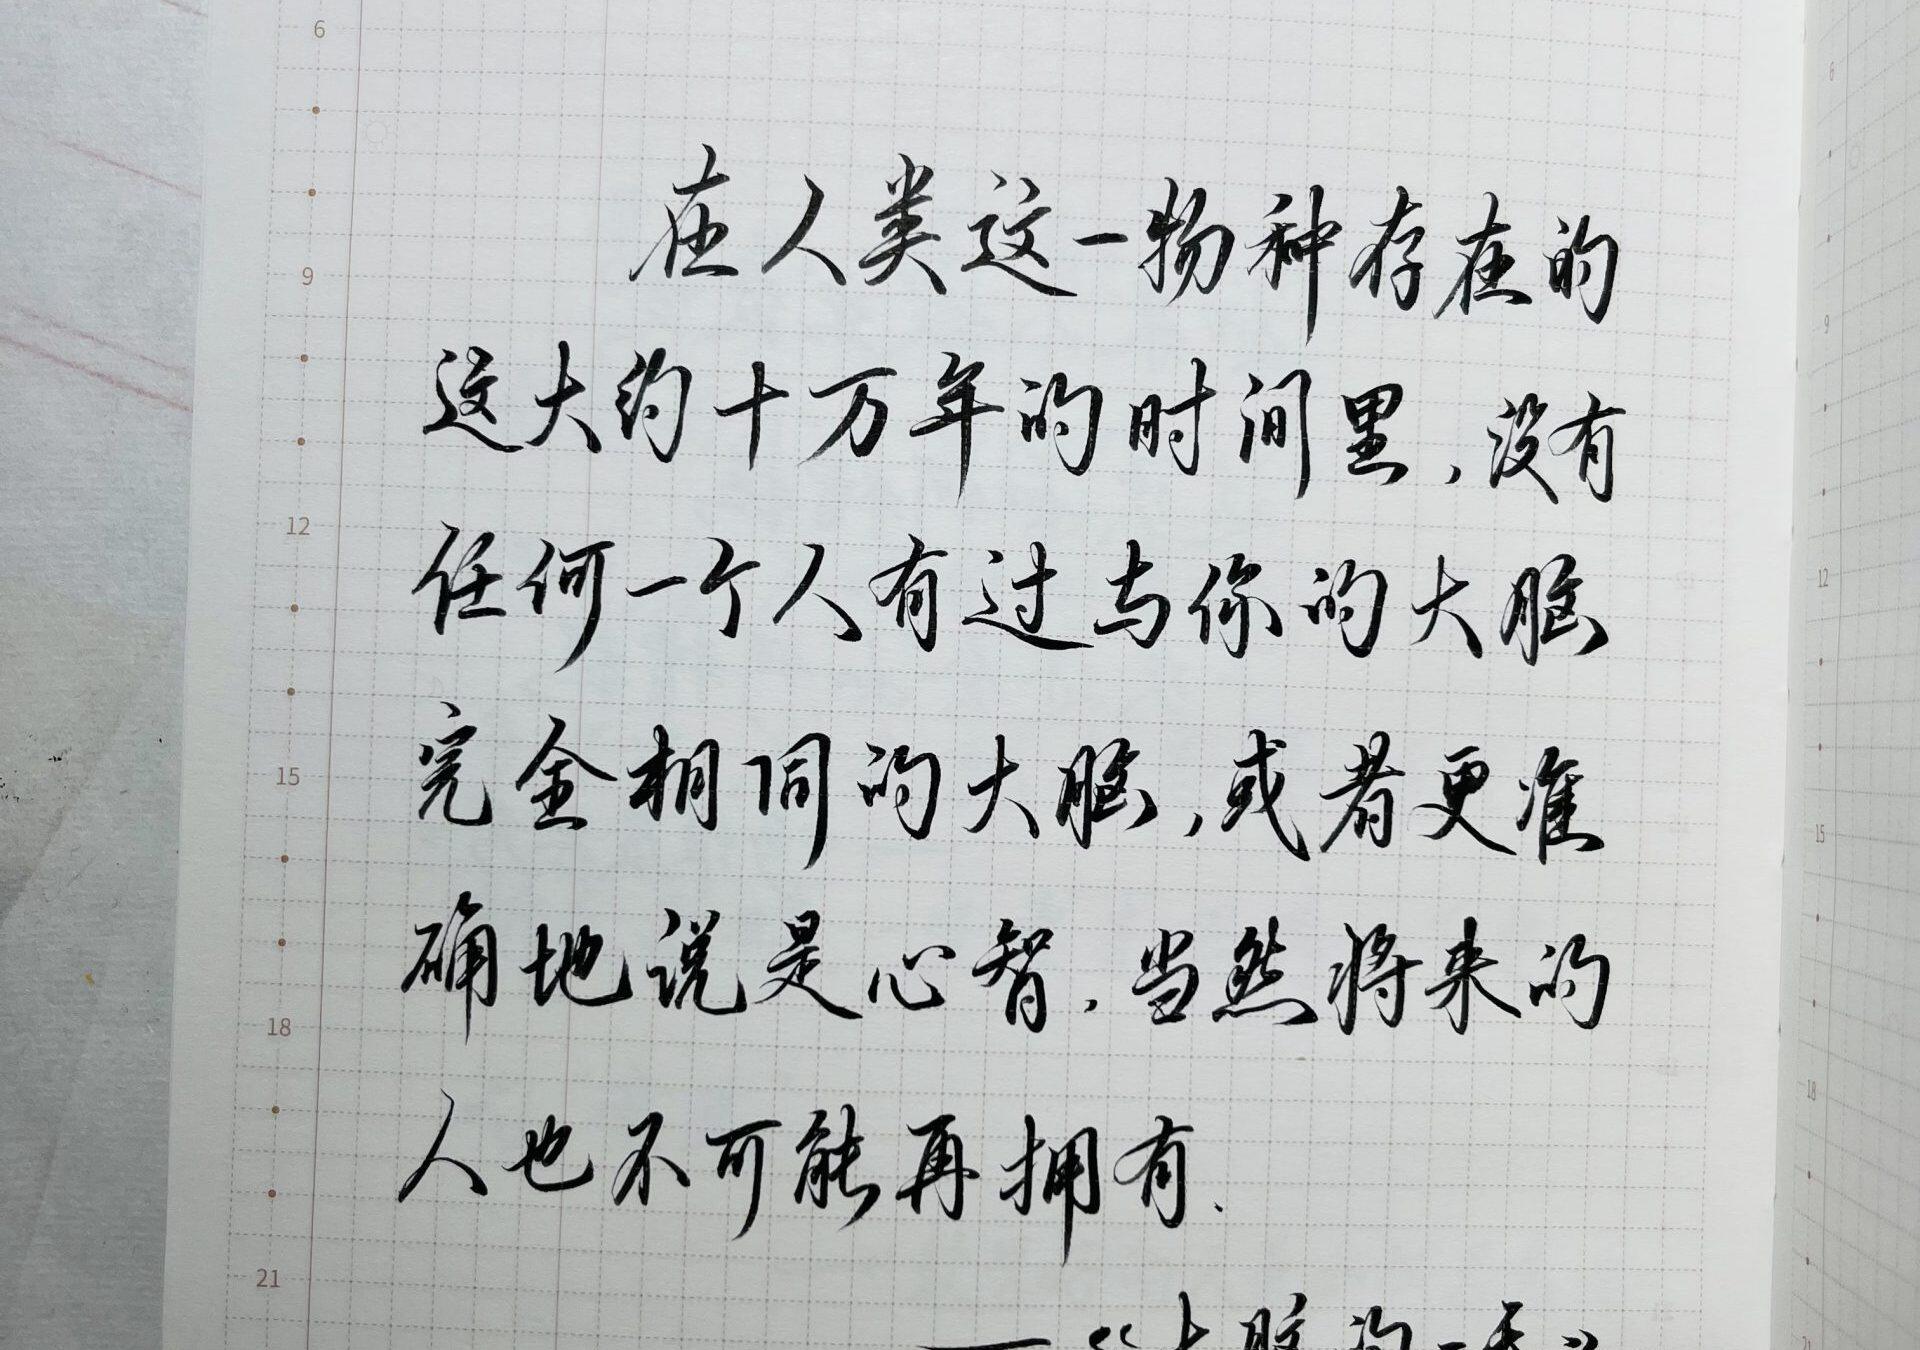 6
9
12
15
18
21
在人类这一物种存在的
这大约十万年的时间里,没有
任何一个人有过与你的大脑
完全相同的大脑,或者更准
确地说是心智.当然将来的
人也不可能再拥有.
—《大脑的一天》
6
9
12
15
18
21